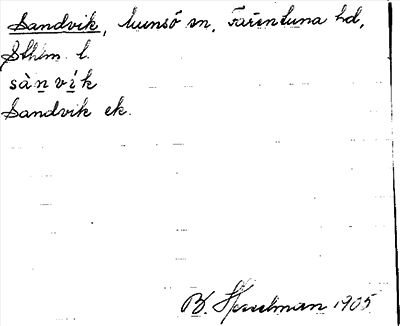 Sandvik, Munsö sn, Färentuna hd,
Sthlm l.
sànvík
Sandvik ek.
B. Hesselman 1905